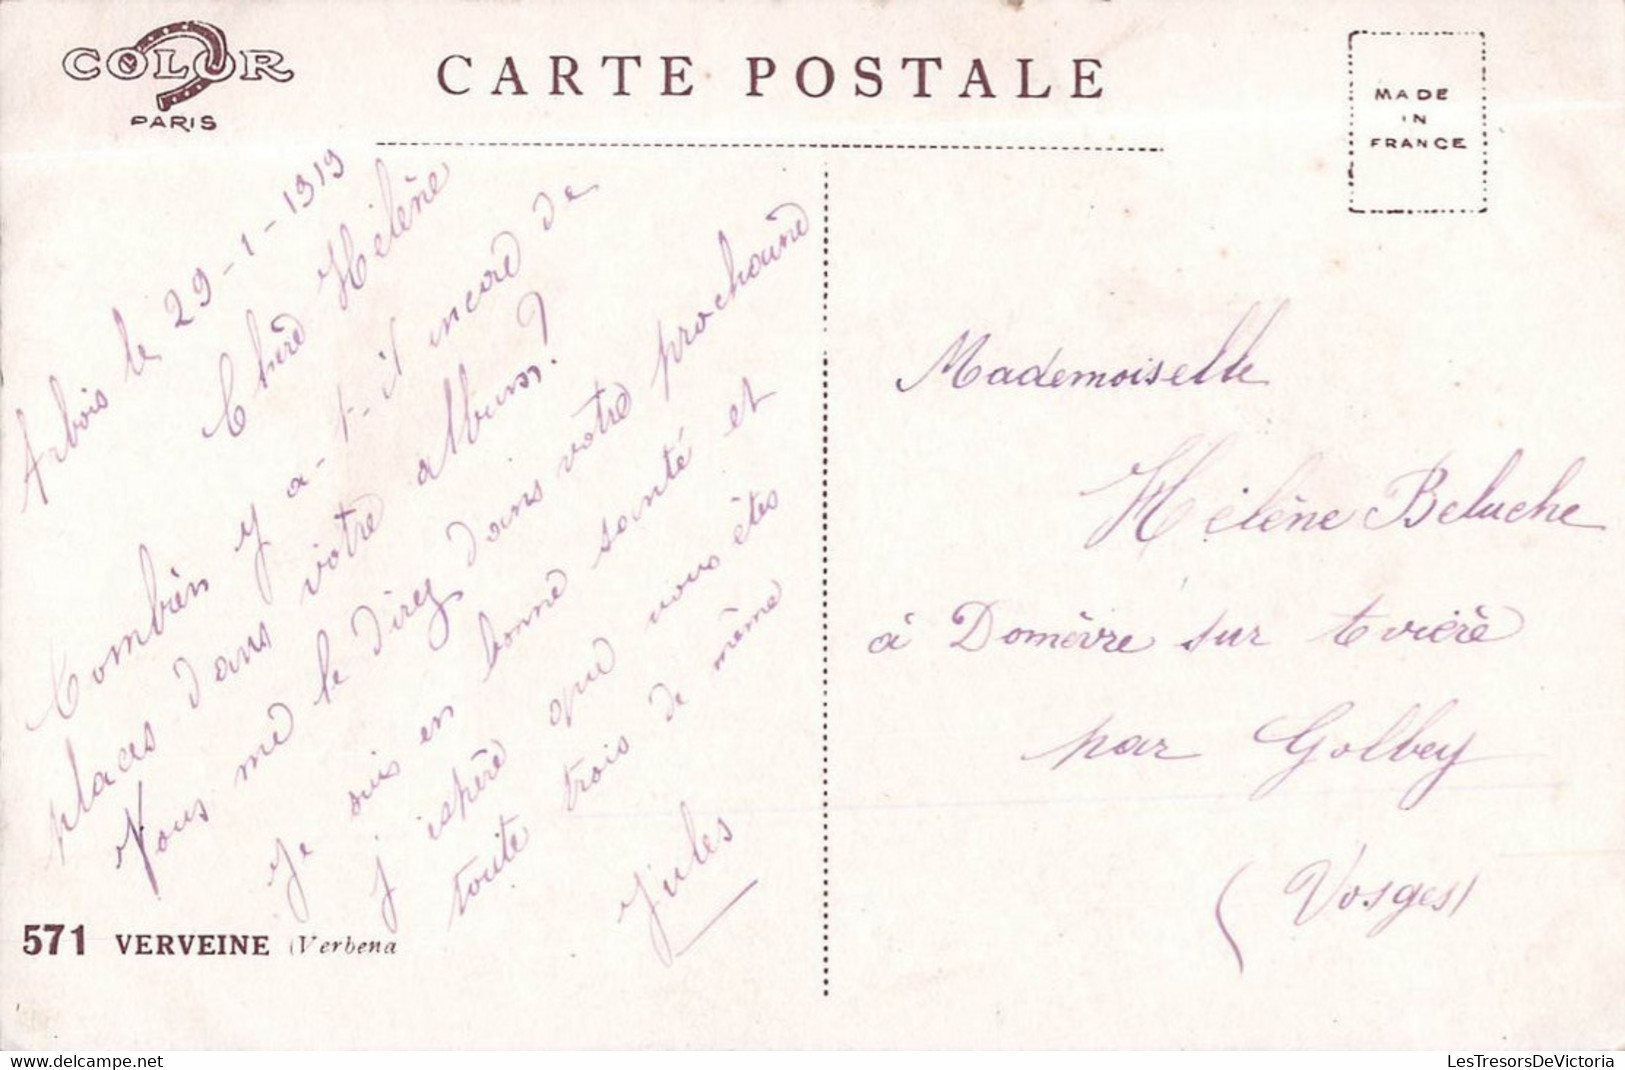 COLOR
PARIS
CARTE POSTALE
MADE
IN
FRANCE
Arbois le 29-1-1919
Chère Hélène
Combien y a-t-il encore de
places dans votre album?
Vous me le direz dans votre prochaine
Je suis en bonne santé et
j'espère que vous êtes
toute trois de même
Jules
Mademoiselle
Hélène Beluche
à Domèvre sur
par Golbey
(Vosges)
571 VERVEINE (Verbena
LesTresorsDeVictoria